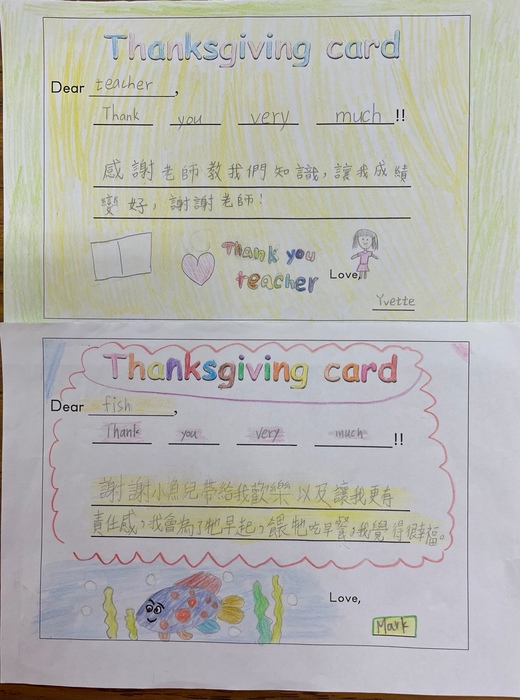 Thanksgiving card
Dear teacher,
Thank you very much!!
感謝老師教我們知識,讓我成績
變好,謝謝老師!
Thank you
teacher
Love,
Yvette
Thanksgiving card
Dear fish,
Thank you very much!!
謝謝小魚兒帶給我歡樂以及讓我更有
責任感,我會為了牠早起,餵牠吃早餐,我覺得很幸福。
Love,
Mark